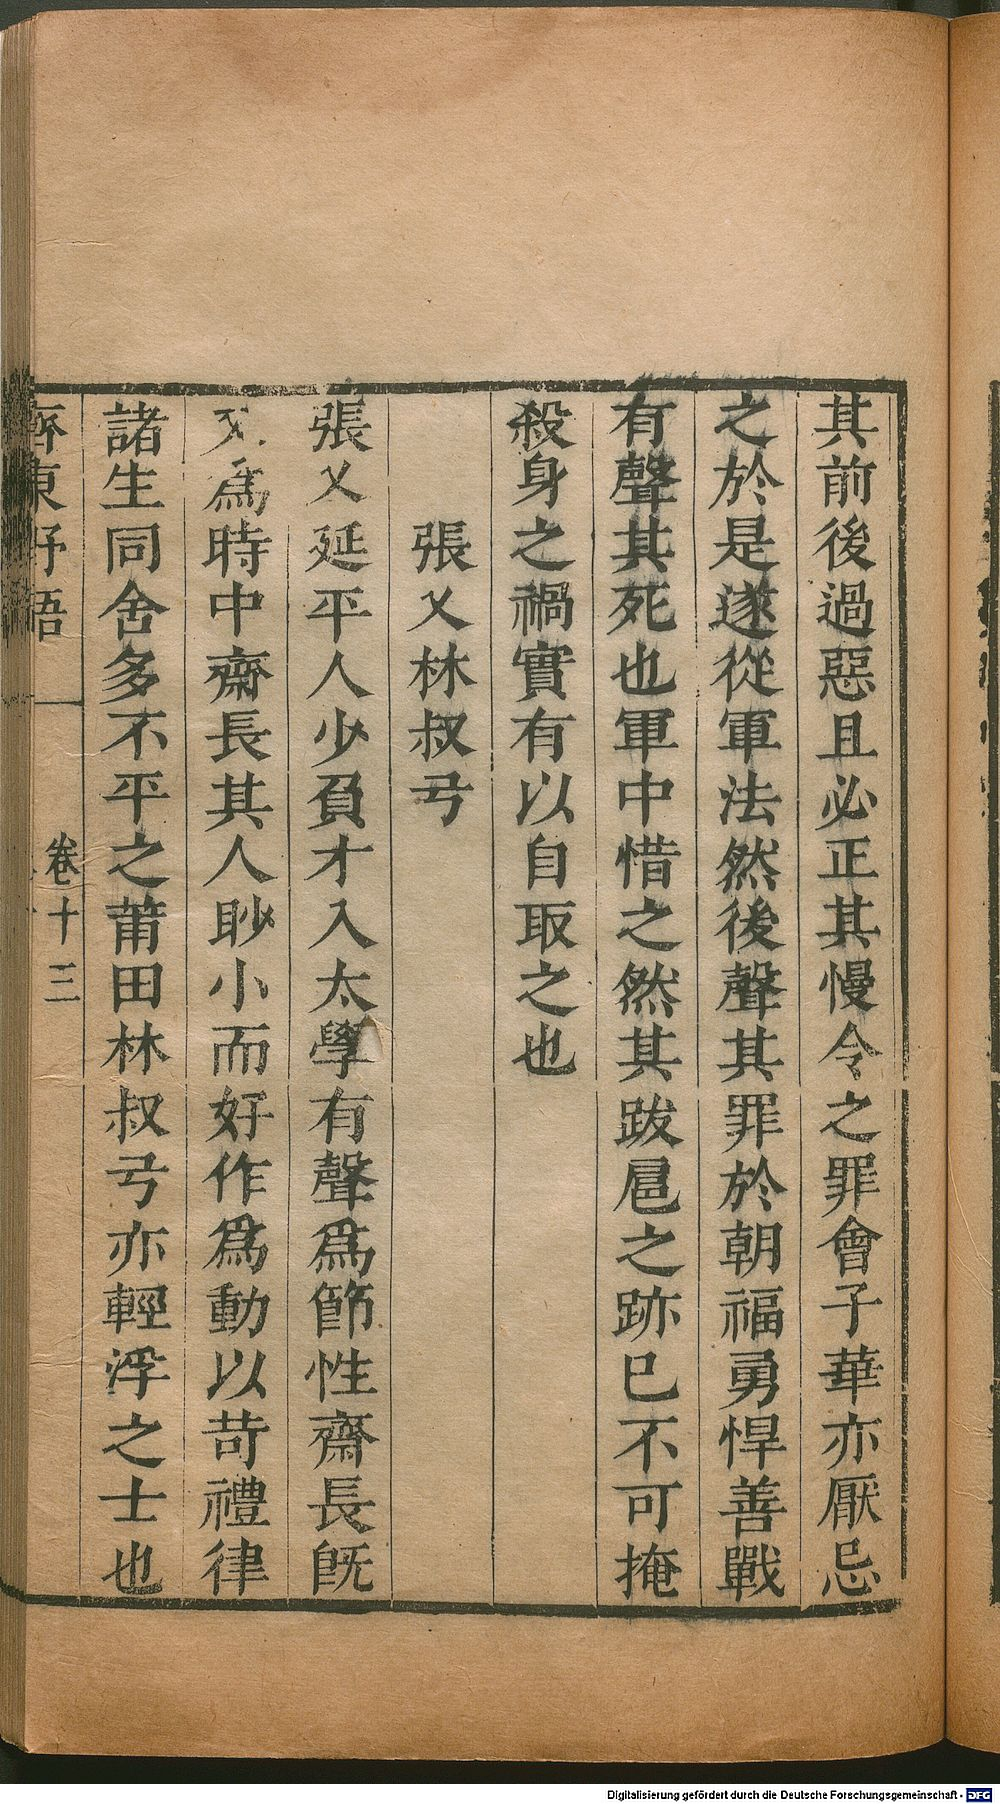 其前後過惡且必正其慢令之罪會子華亦厭忌
之於是遂從軍法然後聲其罪於朝福勇悍善戰
有聲其死也軍中惜之然其跋扈之跡已不可掩
殺身之禍實有以自取之也
張乂林叔弓
張乂延平人少負才入太學有聲爲節性齋長旣
又爲時中齋長其人眇小而好作爲動以苛禮律
諸生同舍多不平之莆田林叔弓亦輕浮之士也
齊東野語
卷十三
Digitalisierung gefördert durch die Deutsche Forschungsgemeinschaft - DFG